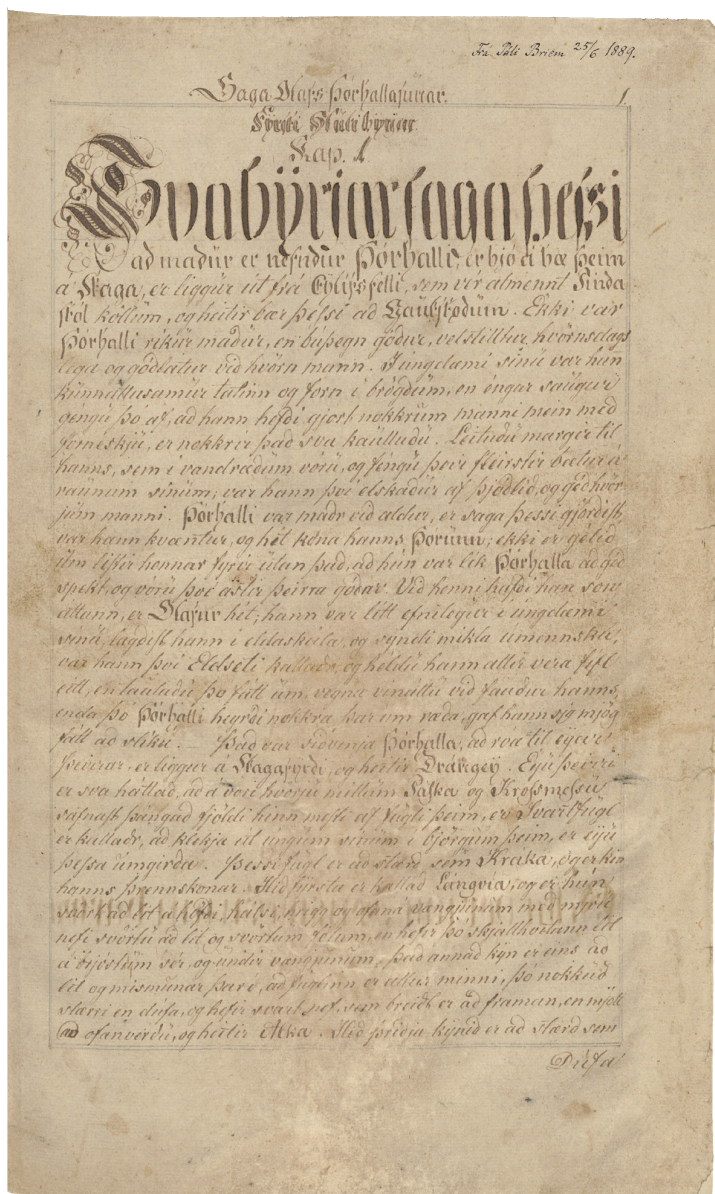 Frá Páli Briem 25/6 1889.
Saga Olafs Þórhallasünar. 1.
Fyrsti
Kap. 1
Svabÿriar saga þessi
ad madür er nefndür Þórhalli, er bjó á bæ þeim
á Skaga, er liggur út frá Eylifsfelli, sem vér almennt Tinda
stól köllüm, og heitir bær þéssi ad . Ekki var
Þórhalli ríkür madür, en büþegn gódür, velstilltur hvörnsdags
lega og gódlátur vid hvörn mann. Í üngdæmi sínü var hün
künnáttusamür talinn og forn í brögdüm, en engar saügür
gengü þó af, ad hann hefdi gjört nokkrüm manni mein med
forneskjü, er nokkrer þad sva kaülludü. Leitüdü marger til
hanns, sem í vandrædüm vórü, og fengü þeir fleirstir bætur á
raünum sínüm; var hann því elskadür af þjódlid, og gédhvör-
jüm manni. Þórhalli var madr vid aldur, er saga þessi gjördist,
var hann kvæntur, og hét kóna hanns Þórünn; ekki er gétid
üm ættir hennar fyrir ütan þad, ad hún var lík Þórhalla ad géd
spekt, og vórü því ástir þeirra gódar. Vid henni hafdi hann son
áttann, er Olafür hét; hann var lítt efnilegür í üngdæmi
sínü, lagdist hann í eldaskála, og sýndi mikla ümennskü,
var hann því Eldseti kalladr, og héldü hann allir vera fífl
eitt, en taüludü þó fátt üm, vegna vináttu vid faudur hanns,
enda þó Þórhalli heyrdi nokkra þar um ræda, gaf hann sig mjög
fátt ad slíkü. — Þad var sidvenja Þórhalla, ad róa til eyar
þeirrar, er liggur á Skagafyrdi, og heitir Drángey. Eyü þeirri
er sva háttad, ad á vori hvörjü millüm Páska og Krossmessü
safnast þángad fjöldi hinn mesti af fügli þeim, er Svartfügl
er kalladr, ad klekja út üngum sínüm í björgüm þeim, er eyü
þessa ümgirda. Þessi fugl er ad stærd sem Kráka, og er kin
hanns þrennskonar. Hid fyrsta er kallad Lángvía, og er hún
svört ad lit á höfdi, hálsi, hrigg og ofaná vængjünum med mjóü
nefi svörtü ad lit og svörtüm fótum, en hefir þó skjallhvítann lit
á brjóstüm sér, og ündir vængjünüm. Þad annad kyn er eins ad
lit og mismünar þar í, ad fuglinn er allur minni, þó nokkud
stærri en düfa, og hefir svart nef, sem breidt er ad framan, en mjótt
ad ofanverdü, og heitir Alka. Hid þridja kÿnid er ad stærd sem
Dúfa